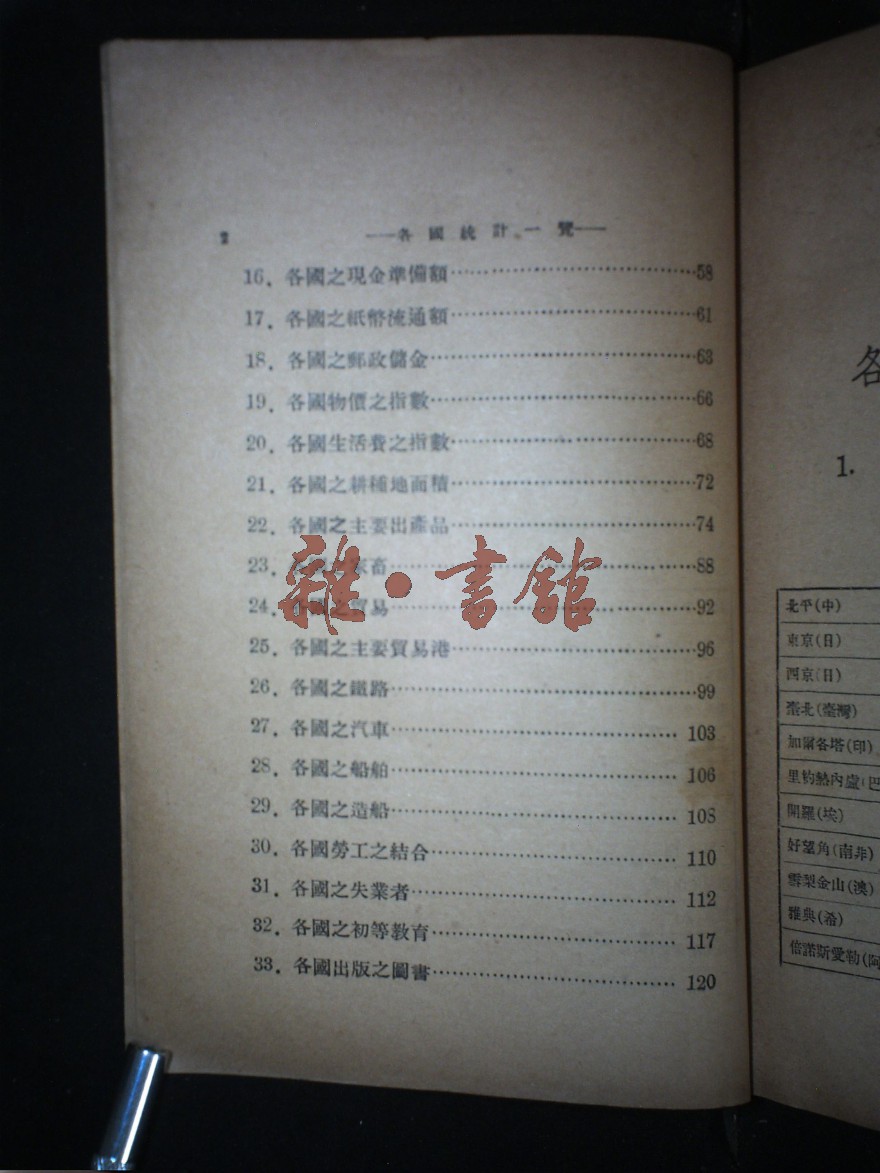 2 ——各國統計一覽——
16. 各國之現金準備額 58
17. 各國之紙幣流通額 61
18. 各國之郵政儲金 63
19. 各國物價之指數 66
20. 各國生活費之指數 68
21. 各國之耕種地面積 72
22. 各國之主要出產品 74
23. 各國之家畜 88
24. 各國之貿易 92
25. 各國之主要貿易港 96
26. 各國之鐵路 99
27. 各國之汽車 103
28. 各國之船舶 106
29. 各國之造船 108
30. 各國勞工之結合 110
31. 各國之失業者 112
32. 各國之初等教育 117
33. 各國出版之圖書 120
雜·書館
各
1.
北平(中)
東京(日)
西京(日)
臺北(臺灣)
加爾各塔(印)
里約熱內盧(巴
開羅(埃)
好望角(南非)
雪梨金山(澳)
雅典(希)
倍諾斯愛勒(阿